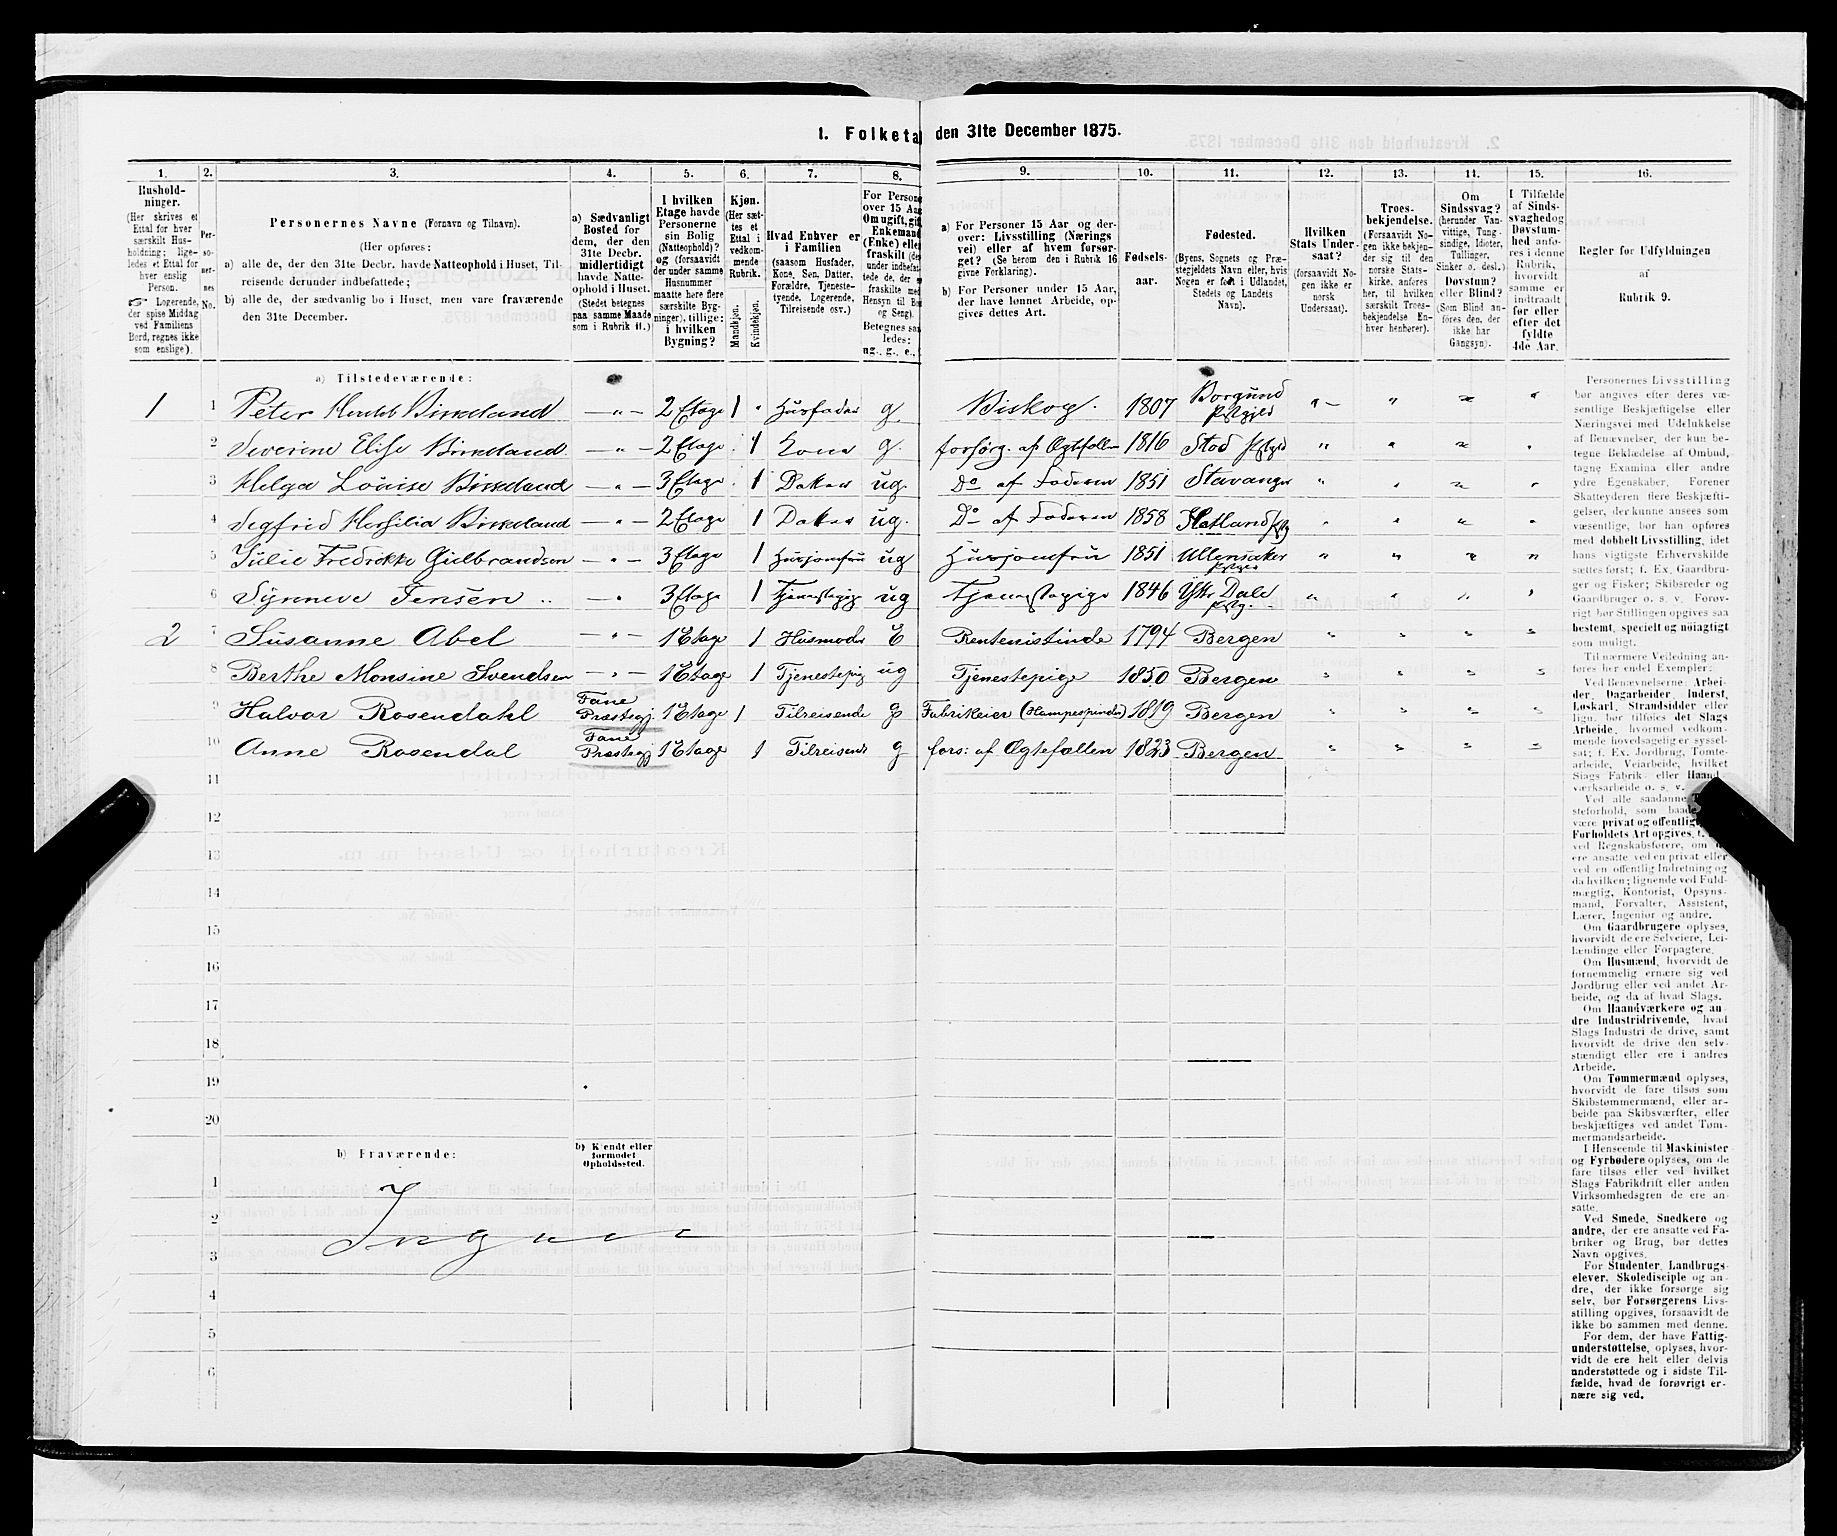 1. Folketal den 31te December 1875.
1. 2. 3. 4. 5. 6. 7. 8. 9. 10. 11. 12. 13. 14. 15. 16.
Hushold-
ninger.
(Her skrives et
Ettal for hver
særskilt Hus-
holdning; lige-
ledes et Ettal for
hver enslig
Person.
☞ Logerende,
der spise Middag
ved Familiens
Bord, regnes ikke
som enslige).
Per-
so-
ner-
nes
No.
Personernes Navne (Fornavn og Tilnavn).
(Her opføres:
a) alle de, der den 31te Decbr. havde Natteophold i Huset, Til-
reisende derunder indbefattede;
b) alle de, der sædvanlig bo i Huset, men vare fraværende
den 31te December.
a) Sædvanligt
Bosted for
dem, der den
31te Decbr.
midlertidigt
havde Natte-
ophold i Huset.
(Stedet betegnes
paa samme Maade
som i Rubrik 11.)
I hvilken
Etage havde
Personerne
sin Bolig
(Natteophold)?
og (forsaavidt
der under samme
Husnummer
maatte høre flere
særskilte Byg-
ninger), tillige:
i hvilken
Bygning?
Kjøn.
(Her sæt-
tes et
Ettal i
vedkom-
mende
Rubrik.
Mandkjøn.
Kvindekjøn.
Hvad Enhver er
i Familien
(saasom Husfader,
Kone, Søn, Datter,
Forældre, Tjeneste-
tyende, Logerende,
Tilreisende osv.)
For Persone
over 15 Aa
Om ugift, gif
Enkemand
(Enke) elle
fraskilt (de
under indbefa
fraskilte me
Hensyn til Bo
og Seng).
Betegnes saa
ledes:
ug., g., e.,
a) For Personer 15 Aar og der-
over: Livsstilling (Nærings
vei) eller af hvem forsør-
get? (Se herom den i Rubrik 16
givne Forklaring).
b) For Personer under 15 Aar,
der have lønnet Arbeide, op-
gives dettes Art.
Fødsels-
aar.
Fødested.
(Byens, Sognets og Præ-
stegjeldets Navn eller, hvis
Nogen er født i Udlandet,
Stedets og Landets
Navn).
Hvilken
Stats Under-
saat?
(forsaavidt No-
gen ikke er
norsk
Undersaat).
Troes-
bekjendelse.
(Forsaavidt No-
gen ikke bekjen-
der sig til den
norske Stats-
kirke, anføres
her, til hvilken
særskilt Troes-
bekjendelse En-
hver henhører).
Om
Sindssvag?
(herunder Van-
vittige, Tung-
sindige, Idioter,
Tullinger,
Sinker o. desl.)
Døvstum?
eller Blind?
(Som Blind an-
føres den, der
ikke har
Gangsyn).
I Tilfælde
af Sinds-
svaghed og
Døvstum-
hed anfø-
res i denne
Rubrik,
hvorvidt
samme er
indtraadt
før eller
efter det
fyldte
4de Aar.
Regler for Udfyldningen
af
Rubrik 9.
a) Tilstedeværende:
1 1 Peter Birkeland —„— 2 Etage 1 „ Husfader g. Biskop. 1807 Borgund Pstgjeld „— „ „ „
2 Severine Elise Birkeland —„— 2 Etage 1 Kone g. forsørg. af Ægtefællen 1816 Stod „ „ „ „
3 Helga Louise Birkeland —„— 3 Etage 1 Datter ug. Do af Faderen 1851 Stavanger „ „ „ „
4 Segfrid Hersilia Birkeland —„— 2 Etage 1 Datter ug. Do af Faderen 1858 „ „ „ „
5 Julie Fredrikke Gulbrandsen —„— 3 Etage 1 Husjomfru ug Husjomfru 1851 Ullensaker „ „ „ „
6 Synneve Jensen —„ 3 Etage 1 Tjenestepige ug Tjenestepige 1846 Ytr Dale „ „ „ „
2 7 Susanne Abel —„— 1 Etage 1 Husmoder E Rentenistinde 1794 Bergen „ „ „ „
8 Berthe Monsine Svendsen —„— 1 Etage 1 Tjenestepig ug Tjenestepige 1850 Bergen „ „ „ „
9 Halvor Rosendahl Fane Præstegj. 1 Etage 1 Tilreisende g Fabrikeier (Hampespinder) 1819 Bergen „ „ „ „
10 Anne Rosendal Fane Præstegj 1 Etage 1 Tilreisende g fors: af Ægtefællen 1823 Bergen „ „ „ „
11
12
13
14
15
16
17
18
19
20
b) Fraværende:
b) Kjendt eller
formodet
Opholdssted.
1
2
Ingen
3
4
5
6
Personernes Livsstilling
bør angives efter deres væ-
sentlige Beskjæftigelse eller
Næringsvei med Udelukkelse
af Benævnelser, der kun be-
tegne Beklædelse af Ombud,
tagne Examina eller andre
ydre Egenskaber. Forener
Skatteyderen flere Beskjæfti-
gelser, der kunne ansees som
væsentlige, bør han opføres
med dobbelt Livsstilling, idet
hans vigtigste Erhvervskilde
sættes først; f. Ex. Gaardbru-
ger og Fisker; Skibsreder og
Gaardbruger o. s. v. Forøv-
rigt bør Stillingen opgives saa
bestemt, specielt og nøiagtigt
som muligt.
Til nærmere Veiledning an-
føres her endel Exempler:
Ved Benævnelserne Arbei-
der, Dagarbeider, Inderst,
Løskarl, Strandsidder eller
lign. bør tilføies det Slags
Arbeide, hvormed vedkom-
mende hovedsagelig er syssel-
sat; f. Ex. Jordbrug, Tomte-
arbeide, Veiarbeide, hvilket
Slags Fabrik- eller Haand-
værksarbeide o. s. v.
Ved alle saadanne
steforhold, som
være privat og offentlig
Forholdets Art opgives,
ved Regnskabsførere, om
ere ansatte ved en privat eller
ved en offentlig Indretning og
da hvilken; lignende ved Fuld-
mægtig, Kontorist, Opsyns-
mand, Forvalter, Assistent,
Lærer, Ingeniør og andre.
Om Gaardbrugere oplyses,
hvorvidt de ere Selveiere, Lei-
lændinge eller Forpagtere.
Om Husmænd, hvorvidt de
fornemmelig ernære sig ved
Jordbrug eller ved andet Ar-
beide, og da af hvad Slags.
Om Haandværkere og an-
dre Industridrivende, hvad
Slags Industri de drive, samt
hvorvidt de drive den selv-
stændigt eller ere i andres
Arbeide.
Om Tømmermænd oplyses,
hvorvidt de fare tilsøs som
Skibstømmermænd, eller ar-
beide paa Skibsværfter, eller
beskjæftiges ved andet Tøm-
mermandsarbeide.
I Henseende til Maskinister
og Fyrbødere oplyses, om de
fare tilsøs eller ved hvilket
Slags Fabrikdrift eller anden
Virksomhedsgren de ere an-
satte.
Ved Smede, Snedkere og
andre, der ere ansatte ved Fa-
briker og Brug, bør dettes
Navn opgives.
For Studenter, Landbrugs-
elever, Skoledisciple og an-
dre, der ikke forsørge sig
selv, bør Forsørgerens Livs-
stilling opgives, forsaavidt de
ikke bo sammen med denne.
For dem, der have Fattig-
understøttelse, oplyses, hvor-
vidt de ere helt eller delvis
understøttede og i sidste Til-
fælde, hvad de forøvrigt er-
nære sig ved.